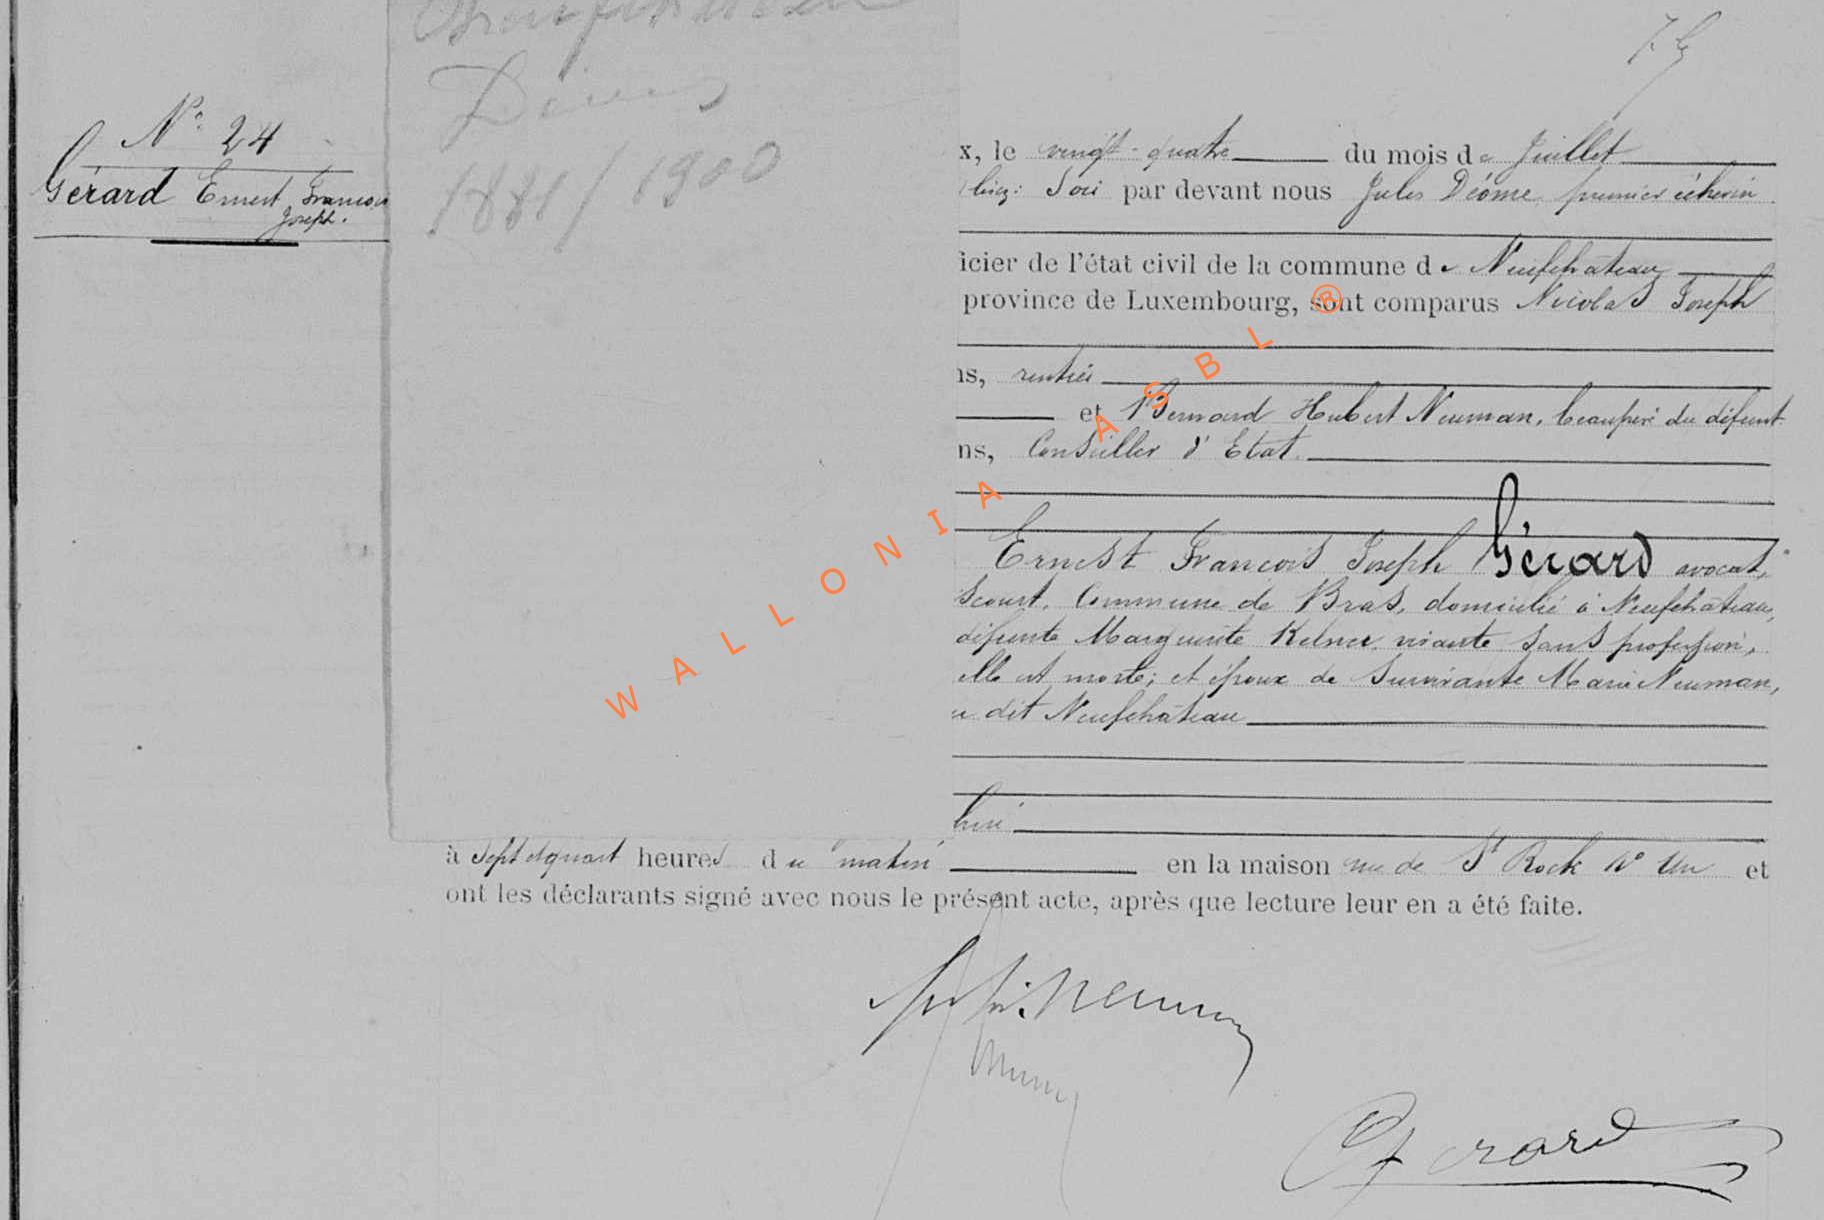 Neufchâteau
Divers
1881/1900
N° 24
Gérard Ernest François
Joseph.
x, le vingt-quatre du mois de Juillet
soir par devant nous Jules Déome, premier échevin
icier de l'état civil de la commune de Neufchâteau
province de Luxembourg, sont comparus Nicolas Joseph
ns, rentier
et Bernard Hubert Neuman, beaupère du défunt
ns, Conseiller d'Etat.
Ernest François Joseph Gérard avocat,
scourt, Commune de Bras, domicilié à Neufchâteau,
défunte Marguerite Kelner, vivante sans profession,
elle est morte; et époux de survivante Marie Neuman,
dit Neufchâteau
à Sept et quart heures du matin en la maison rue de St Roch N° Un et
ont les déclarants signé avec nous le présent acte, après que lecture leur en a été faite.
Neuman
Gérard
WALLONIA ASBL ®